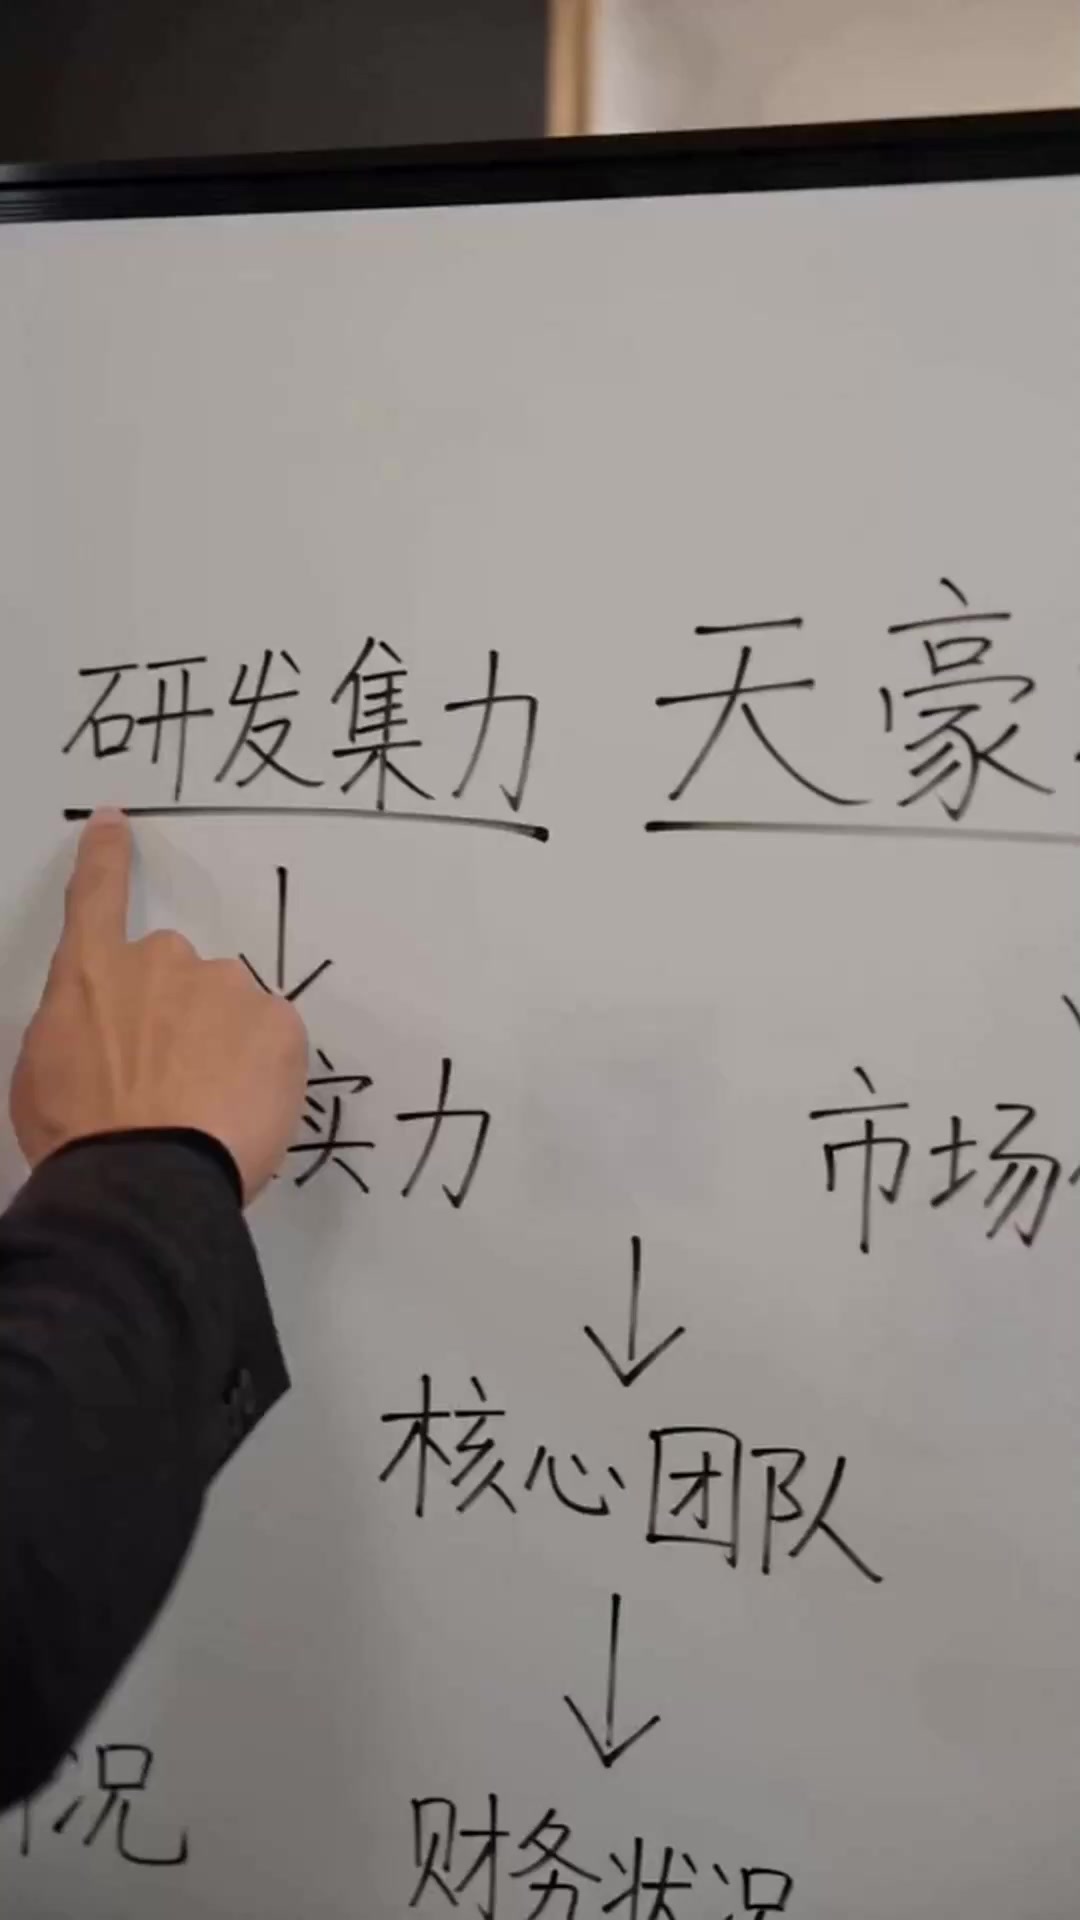 研发集力 天豪
实力 市场
核心团队
况 财务状况